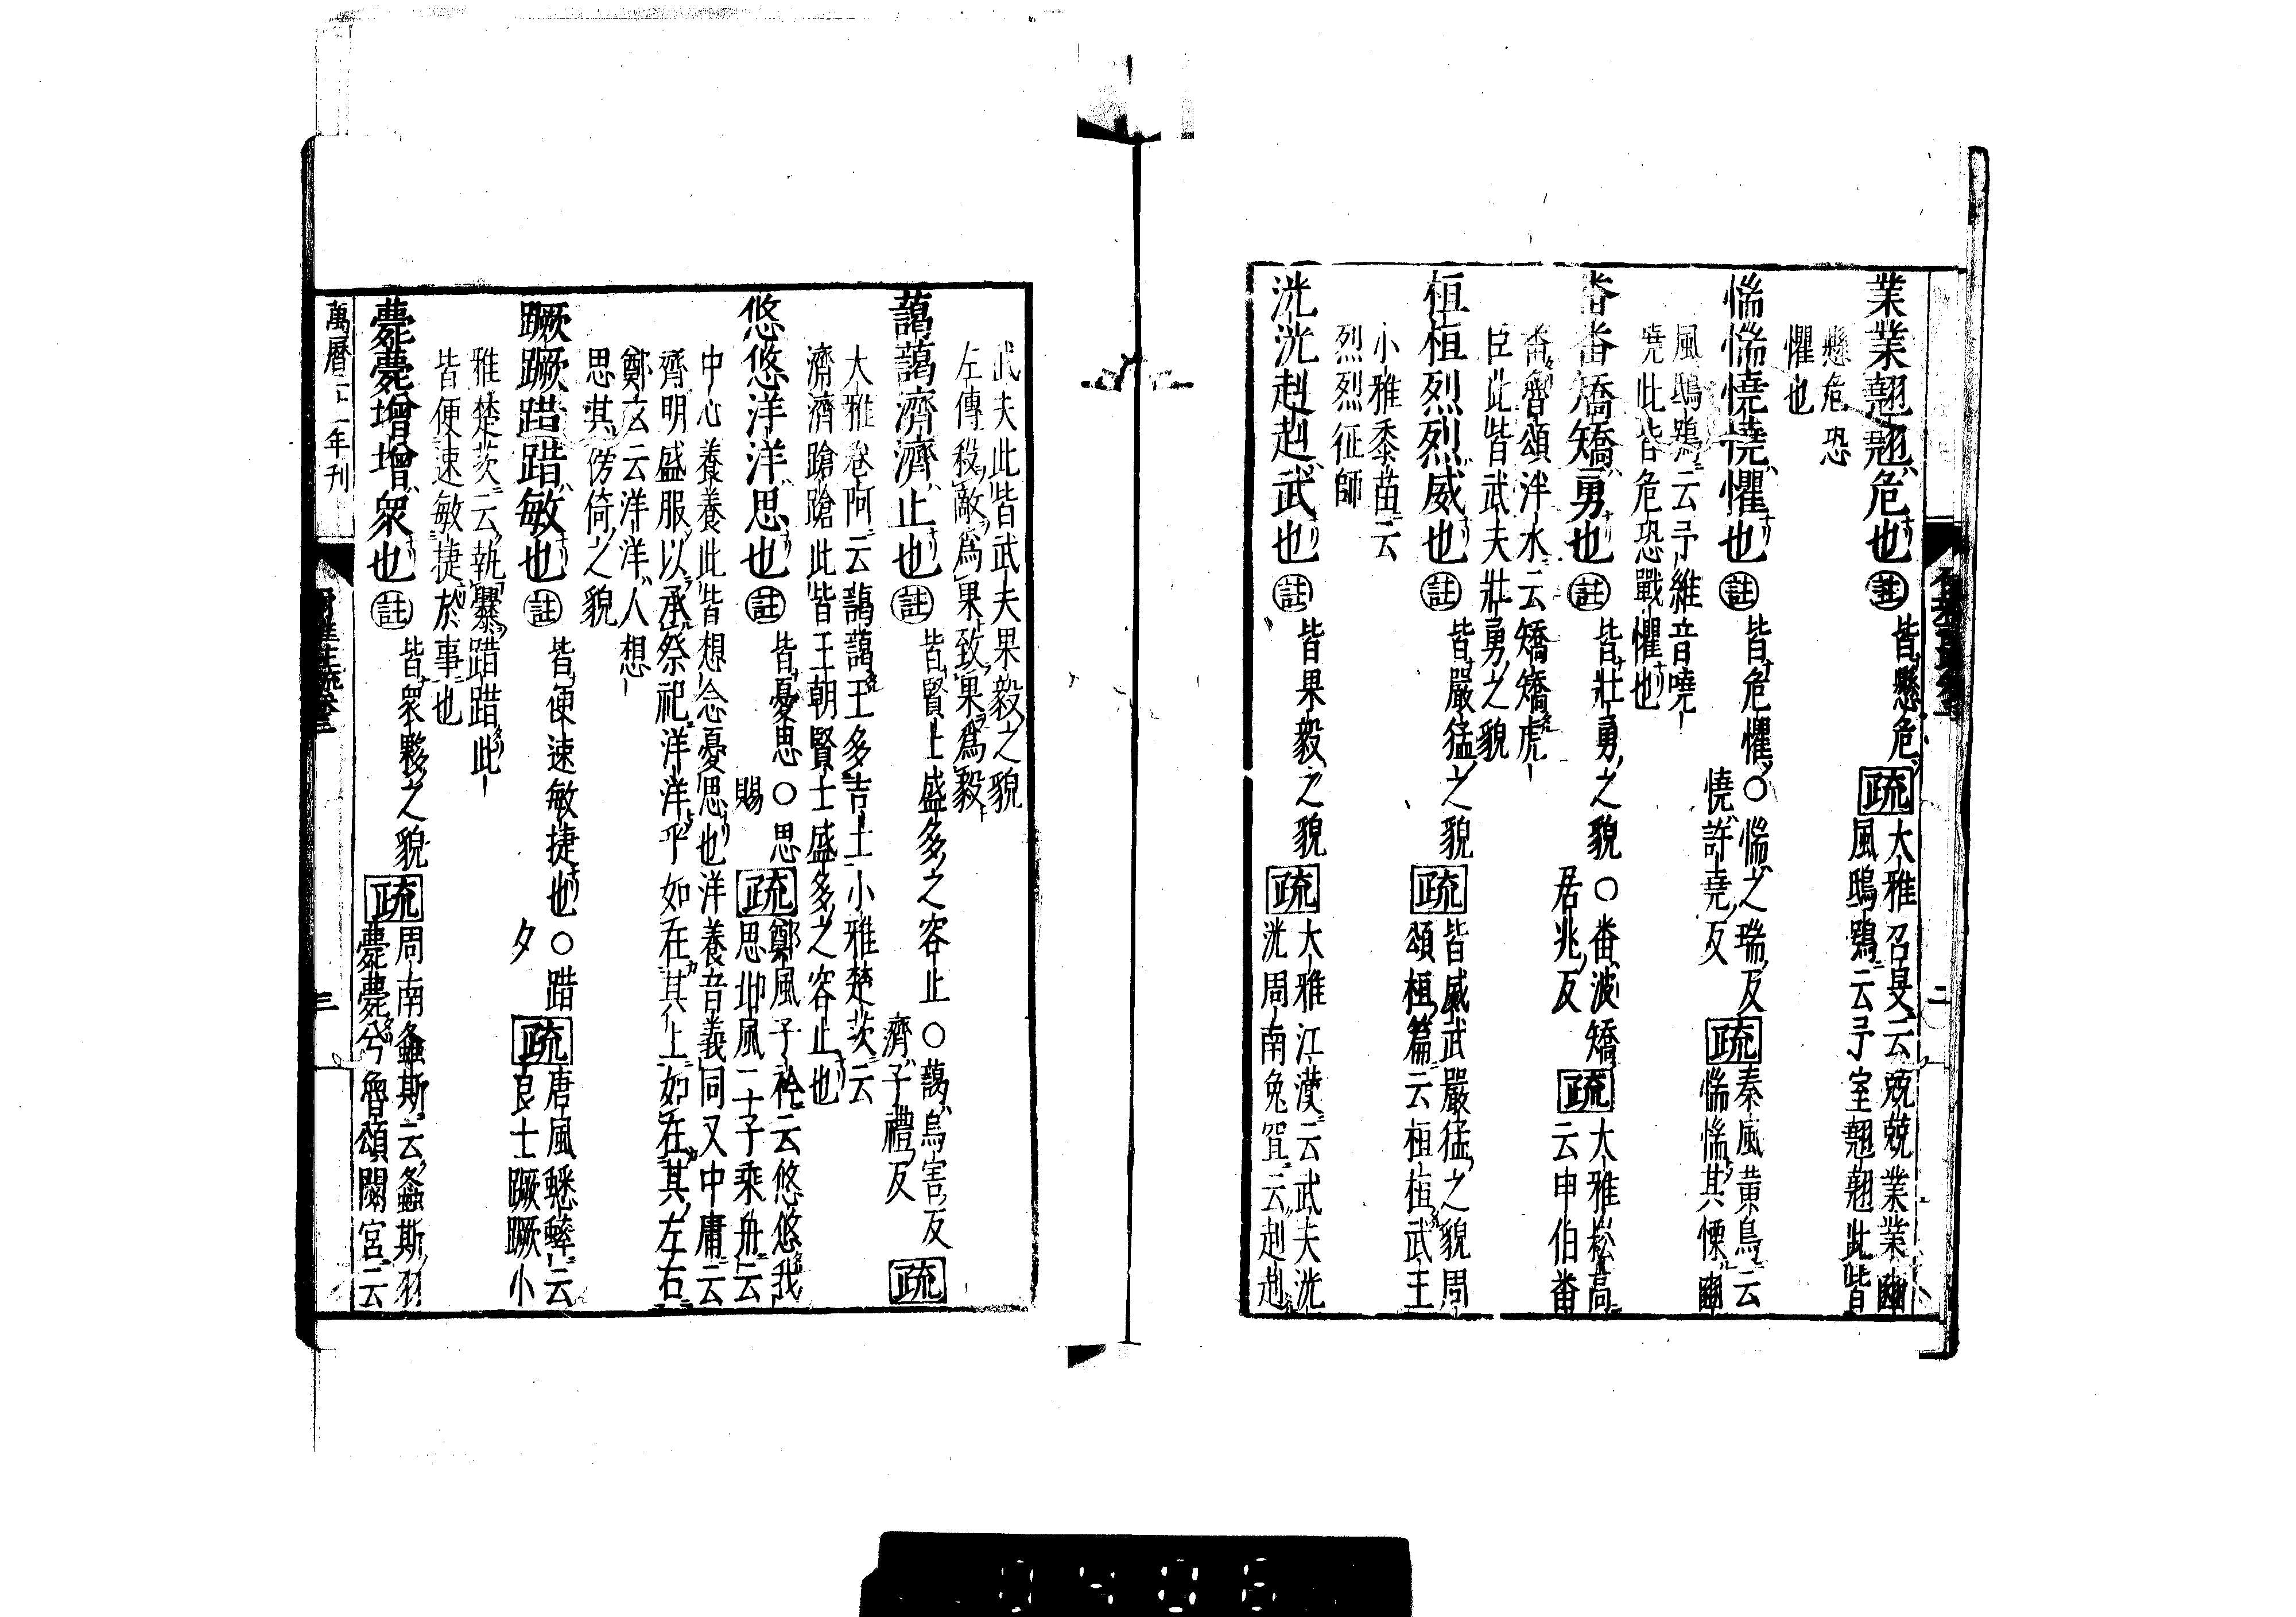 業業翹翹危也註皆懸危疏大雅召旻云兢兢業業豳
風鴟鴞云予室翹翹此皆
懸危恐
懼也
惴惴憢憢懼也註皆危懼○惴之瑞反
憢許堯反
疏秦風黄鳥云
惴惴其慄豳
風鴟鴞云予維音嘵
嘵此皆危恐戰懼也
番番矯矯勇也註皆壯勇之貌○番波矯
居兆反
疏大雅崧高
云申伯番
番魯頌泮水云矯矯虎
臣此皆武夫壯勇之貌
桓桓烈烈威也註皆嚴猛之貌疏皆威武嚴猛之貌周
頌桓篇云桓桓武王
小雅黍苗云
烈烈征師
洸洸赳赳武也註皆果毅之貌疏大雅江漢云武夫洸
洸周南兔罝云赳赳
武夫此皆武夫果毅之貌
左傳殺敵爲果致果爲毅
藹藹濟濟止也註皆賢士盛多之容止○藹烏害反
濟子禮反
疏
大雅卷阿云藹藹王多吉士小雅楚茨云
濟濟蹌蹌此皆王朝賢士盛多之容止也
悠悠洋洋思也註皆憂思○思
賜
疏鄭風子衿云悠悠我
思邶風二子乘舟云
中心養養此皆想念憂思也洋養音義同又中庸云
齊明盛服以承祭祀洋洋乎如在其上如在其左右
鄭玄云洋洋人想
思其傍倚之貌
蹶蹶踖踖敏也註皆便速敏捷也○踖
夕
疏唐風蟋蟀云
良士蹶蹶小
雅楚茨云執爨踖踖此
皆便速敏捷於事也
薨薨增增衆也註皆衆夥之貌疏周南螽斯云螽斯羽
薨薨兮魯頌閟宮云
爾雅註疏卷三
三
二